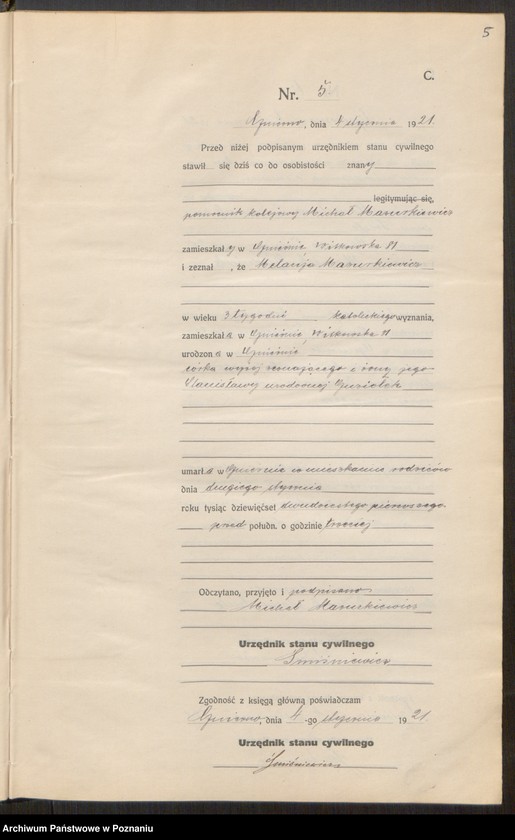 5
C.
Nr. 5
Gniezno, dnia 4 stycznia 1921.
Przed niżej podpisanym urzędnikiem stanu cywilnego
stawił się dziś co do osobistości znany
legitymując się,
pomocnik kolejowy Michał Mazurkiewicz
zamieszkały w Gnieźnie, Witkowska 11
i zeznał, że Melanja Mazurkiewicz
w wieku 3 tygodni katolickiego wyznania,
zamieszkała w Gnieźnie, Witkowska 11
urodzona w Gnieźnie
córka wyżej zeznającego z żoną jego
Stanisławą urodzonej
umarła w Gnieźnie w mieszkaniu rodziców
dnia drugiego stycznia
roku tysiąc dziewięćset dwudziestego pierwszego
przed połudn. o godzinie trzeciej
Odczytano, przyjęto i podpisano
Michał Mazurkiewicz
Urzędnik stanu cywilnego
Zgodność z księgą główną poświadczam
Gniezno, dnia 4-go stycznia 1921.
Urzędnik stanu cywilnego
Archiwum Państwowe w Poznaniu